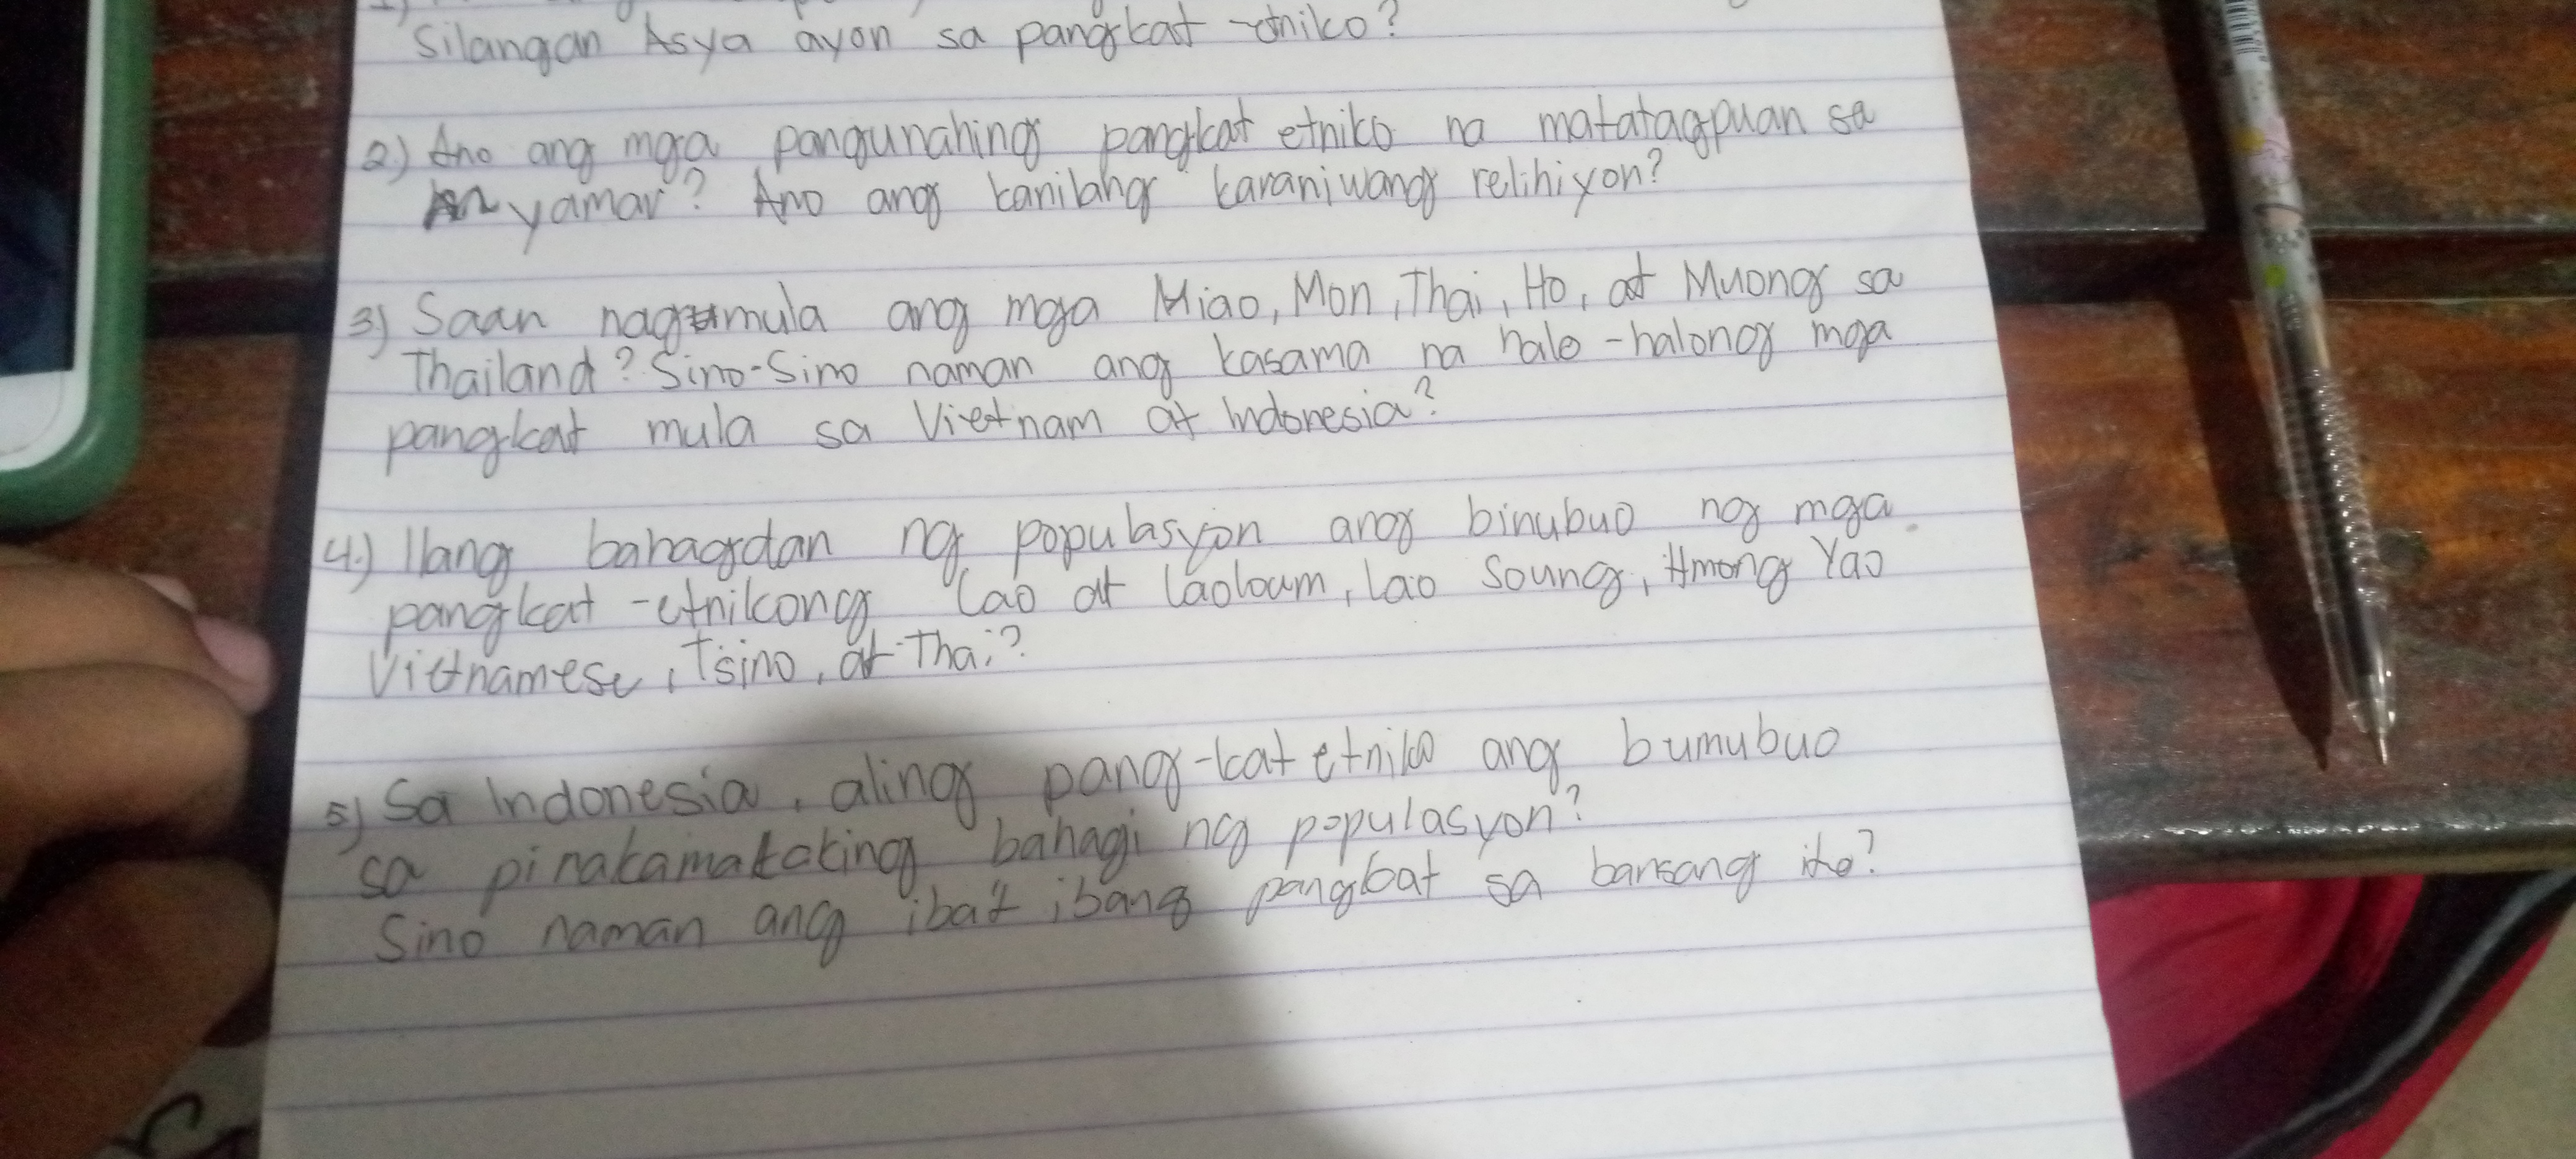 1)
Silangan Asya ayon sa pangkat-etniko?
2.) Ano ang mga pangunahing pangkat etniko na matatagpuan sa
yamar? Ano ang kanilang karaniwang relihiyon?
3) Saan nagmula ang mga Miao, Mon, Thai, Ho, at Muong sa
Thailand? Sino-Sino naman ang kasama na halo-halong mga
pangkat mula sa Vietnam at Indonesia?
4.) Ilang bahagdan ng populasyon ang binubuo ng mga
pangkat-etnikong Lao at Laoloum, Lao Soung, Hmong Yao
Vietnamese, Tsino, at Thai?
5) Sa Indonesia, aling pang-kat etniko ang bumubuo
sa pinakamalaking bahagi ng populasyon?
Sino naman ang iba't ibang pangkat sa bansang ito?